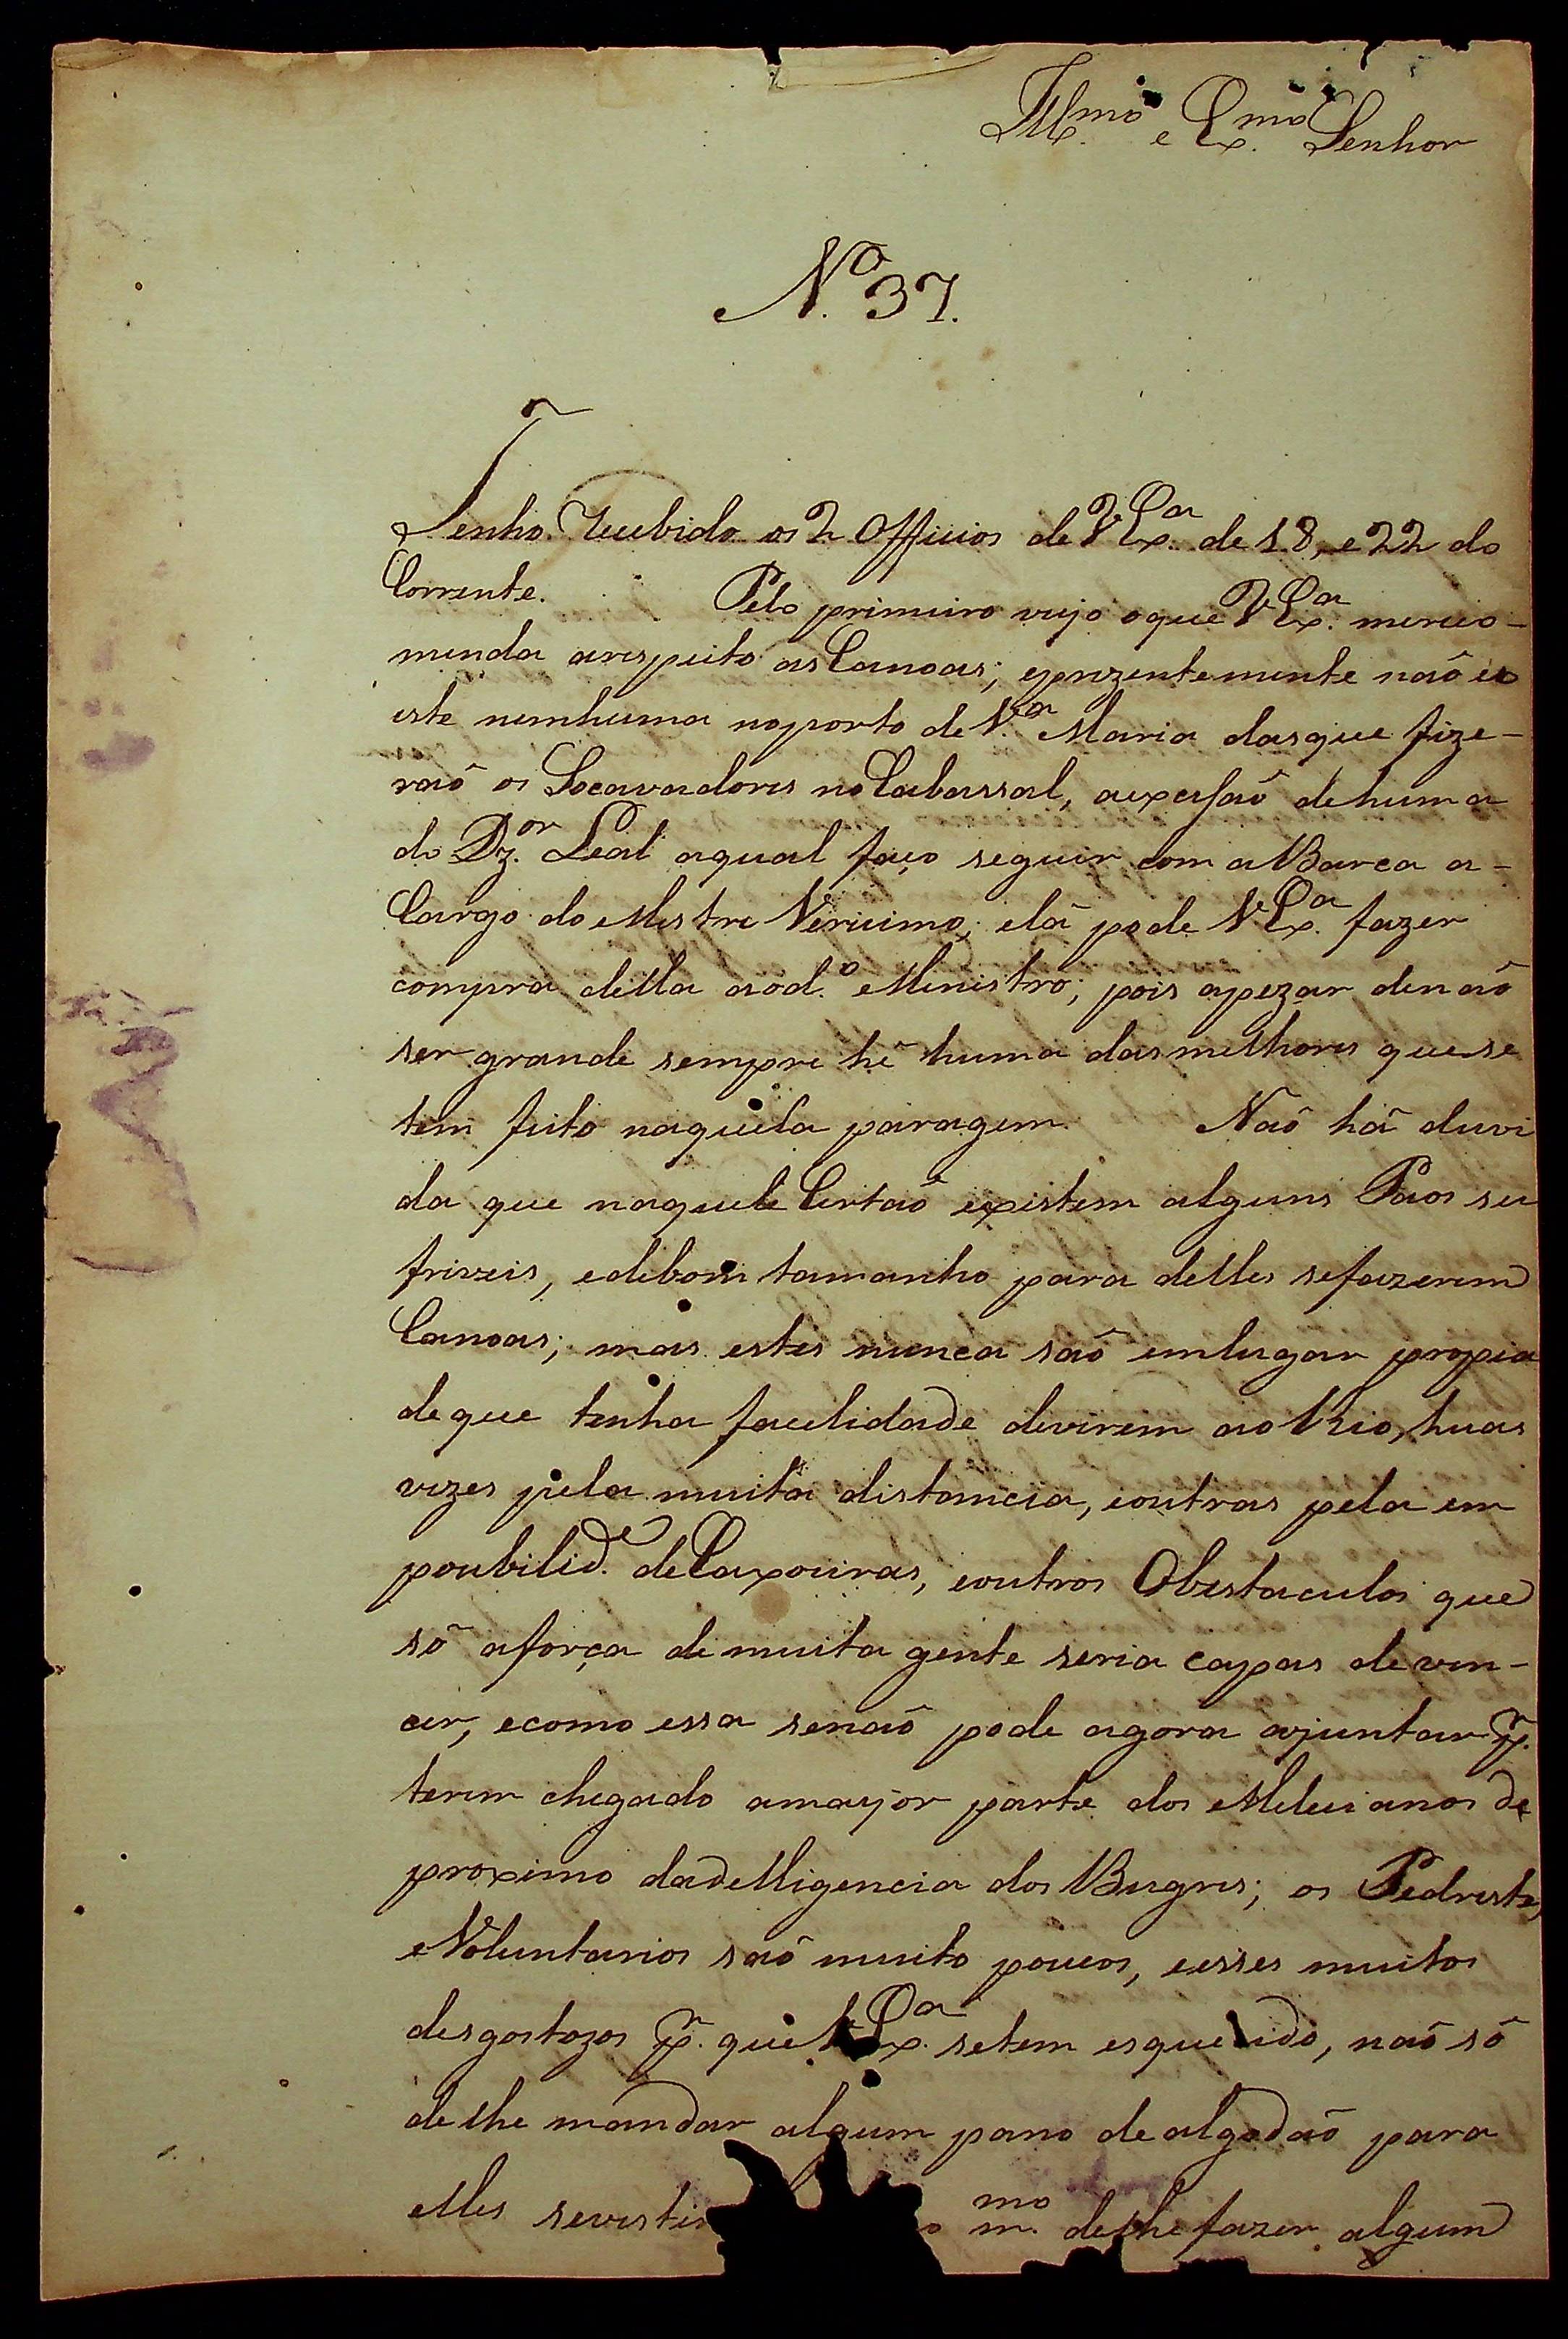 Ill.mo e Ex.mo Senhor
N.o 37.
Tenho recebido os 2 Officios de V Ex.a de 18, e 22 do
Corrente. Pelo primeiro vejo oque V Ex.a mereco-
menda arespeito as Canoas; eprezentemente naõ ex
iste nemhuma noporto de V.a Maria dasque fize-
raõ os Socavadores no Cabassal, aexcesaõ dehuma
do Dz.or Leal aqual faço seguir com aBarca a-
Cargo do Mestre Vericimo, elâ pode V Ex.a fazer
compra della aod.o Menistro; pois apezar denaõ
ser grande sempre hê huma dasmelhores quese
tem feito naquela paragem. Naõ hâ duvi
da que naquele Certaõ existem alguns Paos su
friveis, edebom tamanho para delles sefazerem
Canoas; mas estes nunca saõ emlugar propia
de que tenha facelidade devirem ao Rio, huas
vezes pela muita distancia, eoutras pela em
posibilid.e deCaxoeiras, eoutros Obestaculos que
sô aforça de muita gente seria capas deven-
cer, ecomo essa senaõ pode agora ajuntar p.r
terem chegado amayor parte dos Melecianos de
proximo dadelligencia dos Bugres; os Pedreste,
eVoluntarios saõ muito poucos, eesses muitos
desgostozos p.r que V Ex.a setem esquecido, naõ sô
delhe mandar algum pano dealgodaõ para
elles sevestir o m.mo delhefazer algum